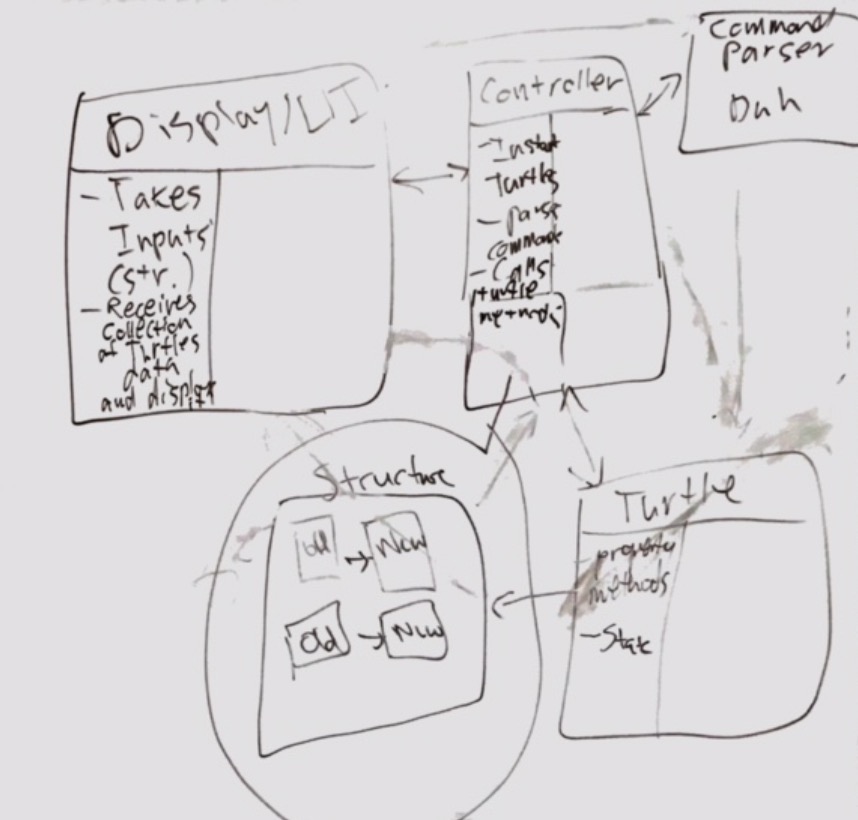 Display/UI
- Takes
Inputs
(str.)
- Receives
collection
of Turtles
data
and display
Controller
Turtles
- Parse
command
- Calls
turtle
methods
Command
Parser
Duh
Structure
old → New
old → New
Turtle
- property
methods
- State